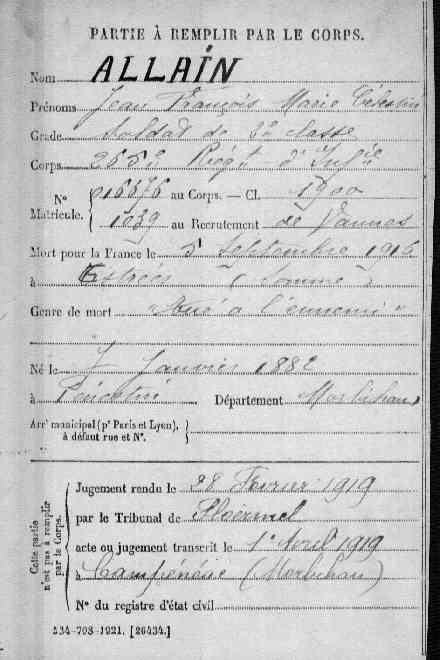 PARTIE À REMPLIR PAR LE CORPS.
Nom ALLAIN
Prénoms Jean François Marie Célestin
Grade Soldat de 2e classe
Corps 265e Régt d'Infie
N° 016676 au Corps. — Cl. 1900
Matricule. 1039 au Recrutement de Vannes
Mort pour la France le 5 Septembre 1916
à Estrées (Somme)
Genre de mort "Tué à l'ennemi"
Né le 7 Janvier 1882
à Département Morbihan
Arrt municipal (pr Paris et Lyon),
à défaut rue et N°.
Cette partie
n'est pas à remplir
par le Corps.
Jugement rendu le 28 Février 1919
par le Tribunal de Ploërmel
acte ou jugement transcrit le 1er Avril 1919
à Campénéac (Morbihan)
N° du registre d'état civil
534-708-1921. [26434.]